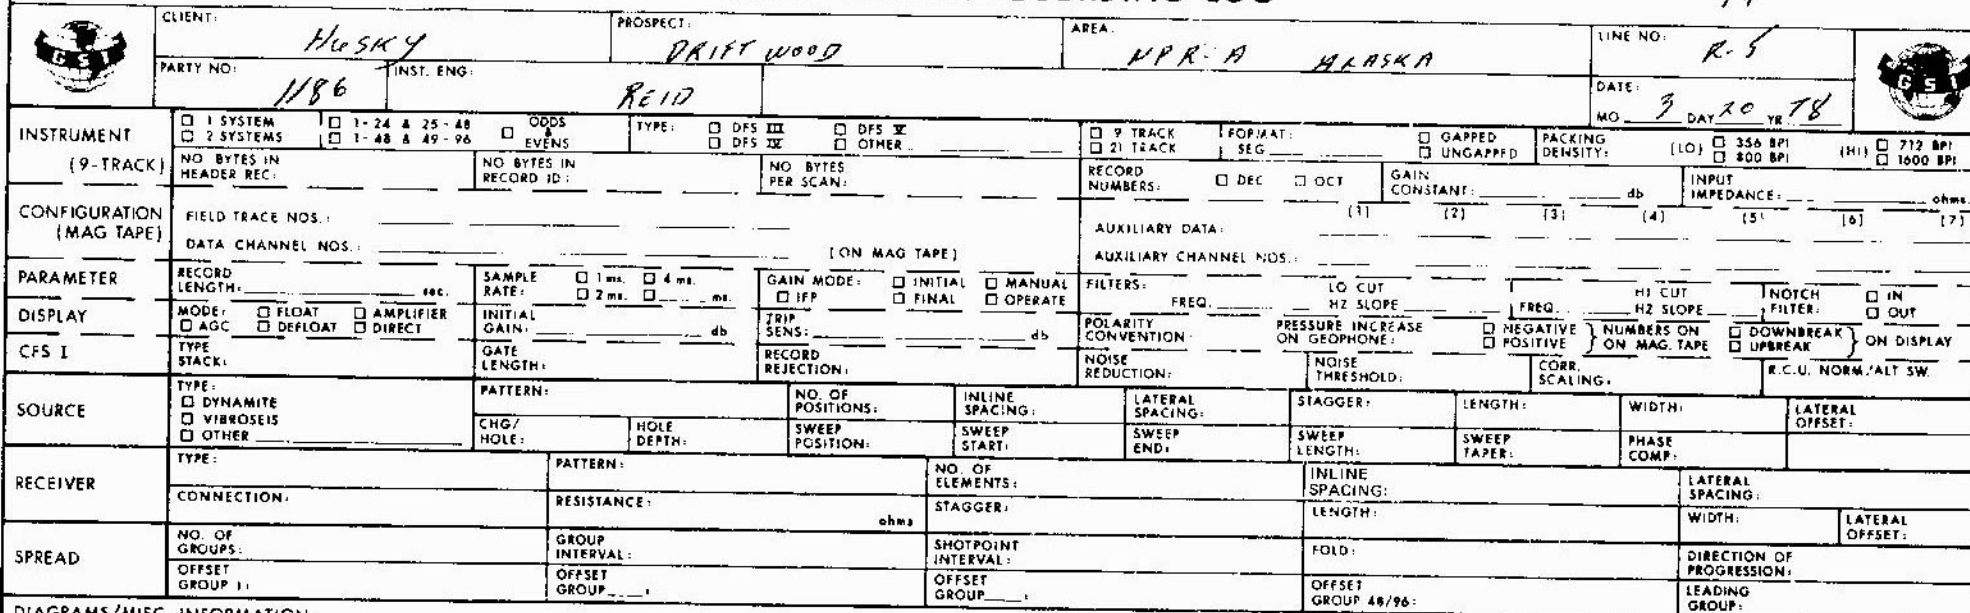 CLIENT: HUSKY PROSPECT: DRIFTWOOD AREA: NPR-A ALASKA LINE NO: R-5
GSI
PARTY NO: 1186 INST. ENG: REID DATE: MO 3 DAY 20 YR 78
GSI
INSTRUMENT (9-TRACK)
☐ 1 SYSTEM ☐ 1-24 & 25-48 ☐ ODDS & EVENS TYPE: ☐ DFS III ☐ DFS V ☐ 9 TRACK FORMAT: ☐ GAPPED PACKING DENSITY: (LO) ☐ 356 BPI (HI) ☐ 712 BPI
☐ 2 SYSTEMS ☐ 1-48 & 49-96 ☐ DFS IV ☐ OTHER ☐ 21 TRACK SEG ☐ UNGAPPED ☐ 800 BPI ☐ 1600 BPI
NO BYTES IN HEADER REC: NO BYTES IN RECORD ID: NO BYTES PER SCAN: RECORD NUMBERS: ☐ DEC ☐ OCT GAIN CONSTANT: db INPUT IMPEDANCE: ohms
CONFIGURATION (MAG TAPE)
FIELD TRACE NOS.: AUXILIARY DATA: (1) (2) (3) (4) (5) (6) (7)
DATA CHANNEL NOS.: (ON MAG TAPE) AUXILIARY CHANNEL NOS.:
PARAMETER RECORD LENGTH: sec. SAMPLE RATE: ☐ 1 ms. ☐ 4 ms. ☐ 2 ms. ☐ ms. GAIN MODE: ☐ INITIAL ☐ MANUAL ☐ IFP ☐ FINAL ☐ OPERATE FILTERS: LO CUT FREQ. HZ SLOPE HI CUT FREQ. HZ SLOPE NOTCH FILTER: ☐ IN ☐ OUT
DISPLAY MODE: ☐ FLOAT ☐ AMPLIFIER ☐ AGC ☐ DEFLOAT ☐ DIRECT INITIAL GAIN: db TRIP SENS: db POLARITY CONVENTION: PRESSURE INCREASE ON GEOPHONE: ☐ NEGATIVE ☐ POSITIVE } NUMBERS ON ON MAG. TAPE ☐ DOWNBREAK ☐ UPBREAK } ON DISPLAY
CFS I TYPE STACK: GATE LENGTH: RECORD REJECTION: NOISE REDUCTION: NOISE THRESHOLD: CORR. SCALING: R.C.U. NORM./ALT SW.
SOURCE
TYPE: ☐ DYNAMITE ☐ VIBROSEIS ☐ OTHER
PATTERN: NO. OF POSITIONS: INLINE SPACING: LATERAL SPACING: STAGGER: LENGTH: WIDTH: LATERAL OFFSET:
CHG/HOLE: HOLE DEPTH: SWEEP POSITION: SWEEP START: SWEEP END: SWEEP LENGTH: SWEEP TAPER: PHASE COMP:
RECEIVER
TYPE: PATTERN: NO. OF ELEMENTS: INLINE SPACING: LATERAL SPACING:
CONNECTION: RESISTANCE: ohms STAGGER: LENGTH: WIDTH: LATERAL OFFSET:
SPREAD
NO. OF GROUPS: GROUP INTERVAL: SHOTPOINT INTERVAL: FOLD: DIRECTION OF PROGRESSION:
OFFSET GROUP 1: OFFSET GROUP : OFFSET GROUP : OFFSET GROUP 48/96: LEADING GROUP:
DIAGRAMS/MISC. INFORMATION